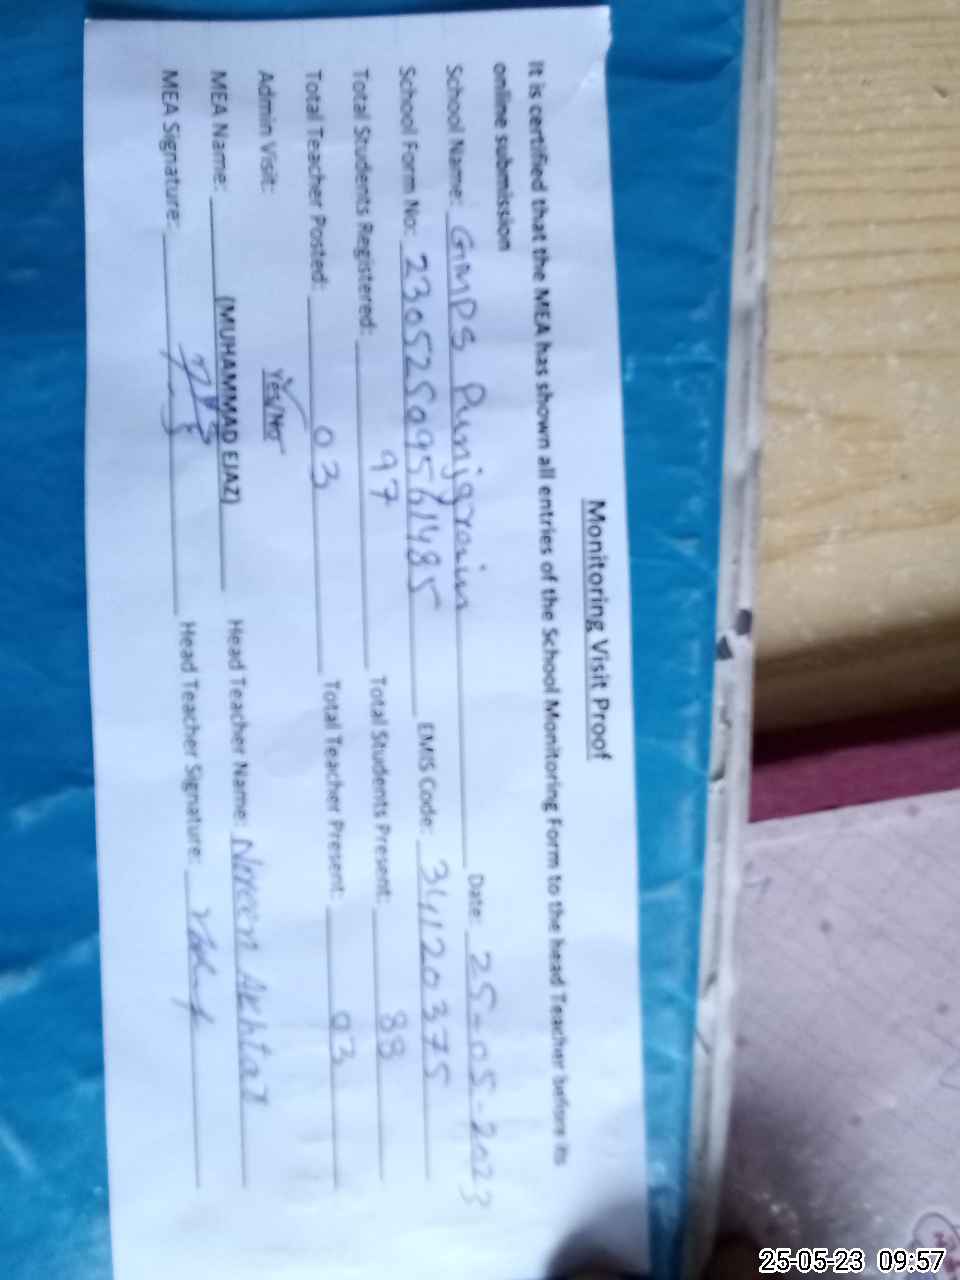 Monitoring Visit Proof
It is certified that the MEA has shown all entries of the School Monitoring Form to the head Teacher before its
online submission
School Name: GMPS Punjgrain Date: 25-05-2023
School Form No: EMIS Code: 31120375
Total Students Registered: 97 Total Students Present: 88
Total Teacher Posted: 03 Total Teacher Present: 03
Admin Visit: Yes/No
MEA Name: (MUHAMMAD EJAZ) Head Teacher Name: Noreen Akhtar
MEA Signature: Head Teacher Signature:
25-05-23 09:57